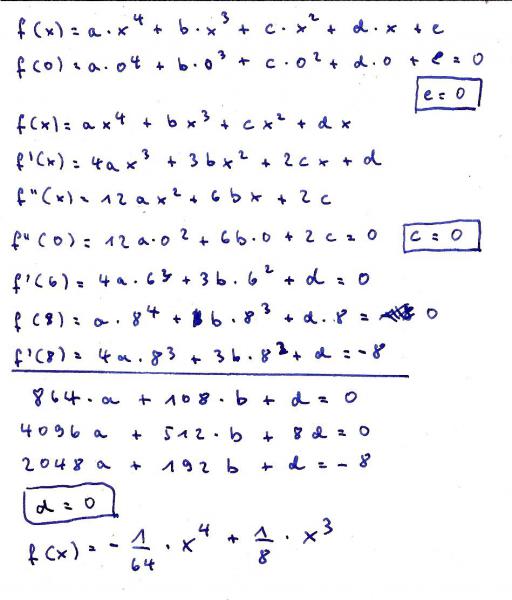 f(x) = a · x⁴ + b · x³ + c · x² + d · x + e
f(0) = a · 0⁴ + b · 0³ + c · 0² + d · 0 + e = 0
e = 0
f(x) = ax⁴ + bx³ + cx² + dx
f'(x) = 4ax³ + 3bx² + 2cx + d
f''(x) = 12ax² + 6bx + 2c
f''(0) = 12a·0² + 6b·0 + 2c = 0 c = 0
f'(6) = 4a·6³ + 3b·6² + d = 0
f(8) = a·8⁴ + b·8³ + d·8 = 0
f'(8) = 4a·8³ + 3b·8² + d = -8
864·a + 108·b + d = 0
4096a + 512·b + 8d = 0
2048a + 192b + d = -8
d = 0
f(x) = - 1/64 · x⁴ + 1/8 · x³